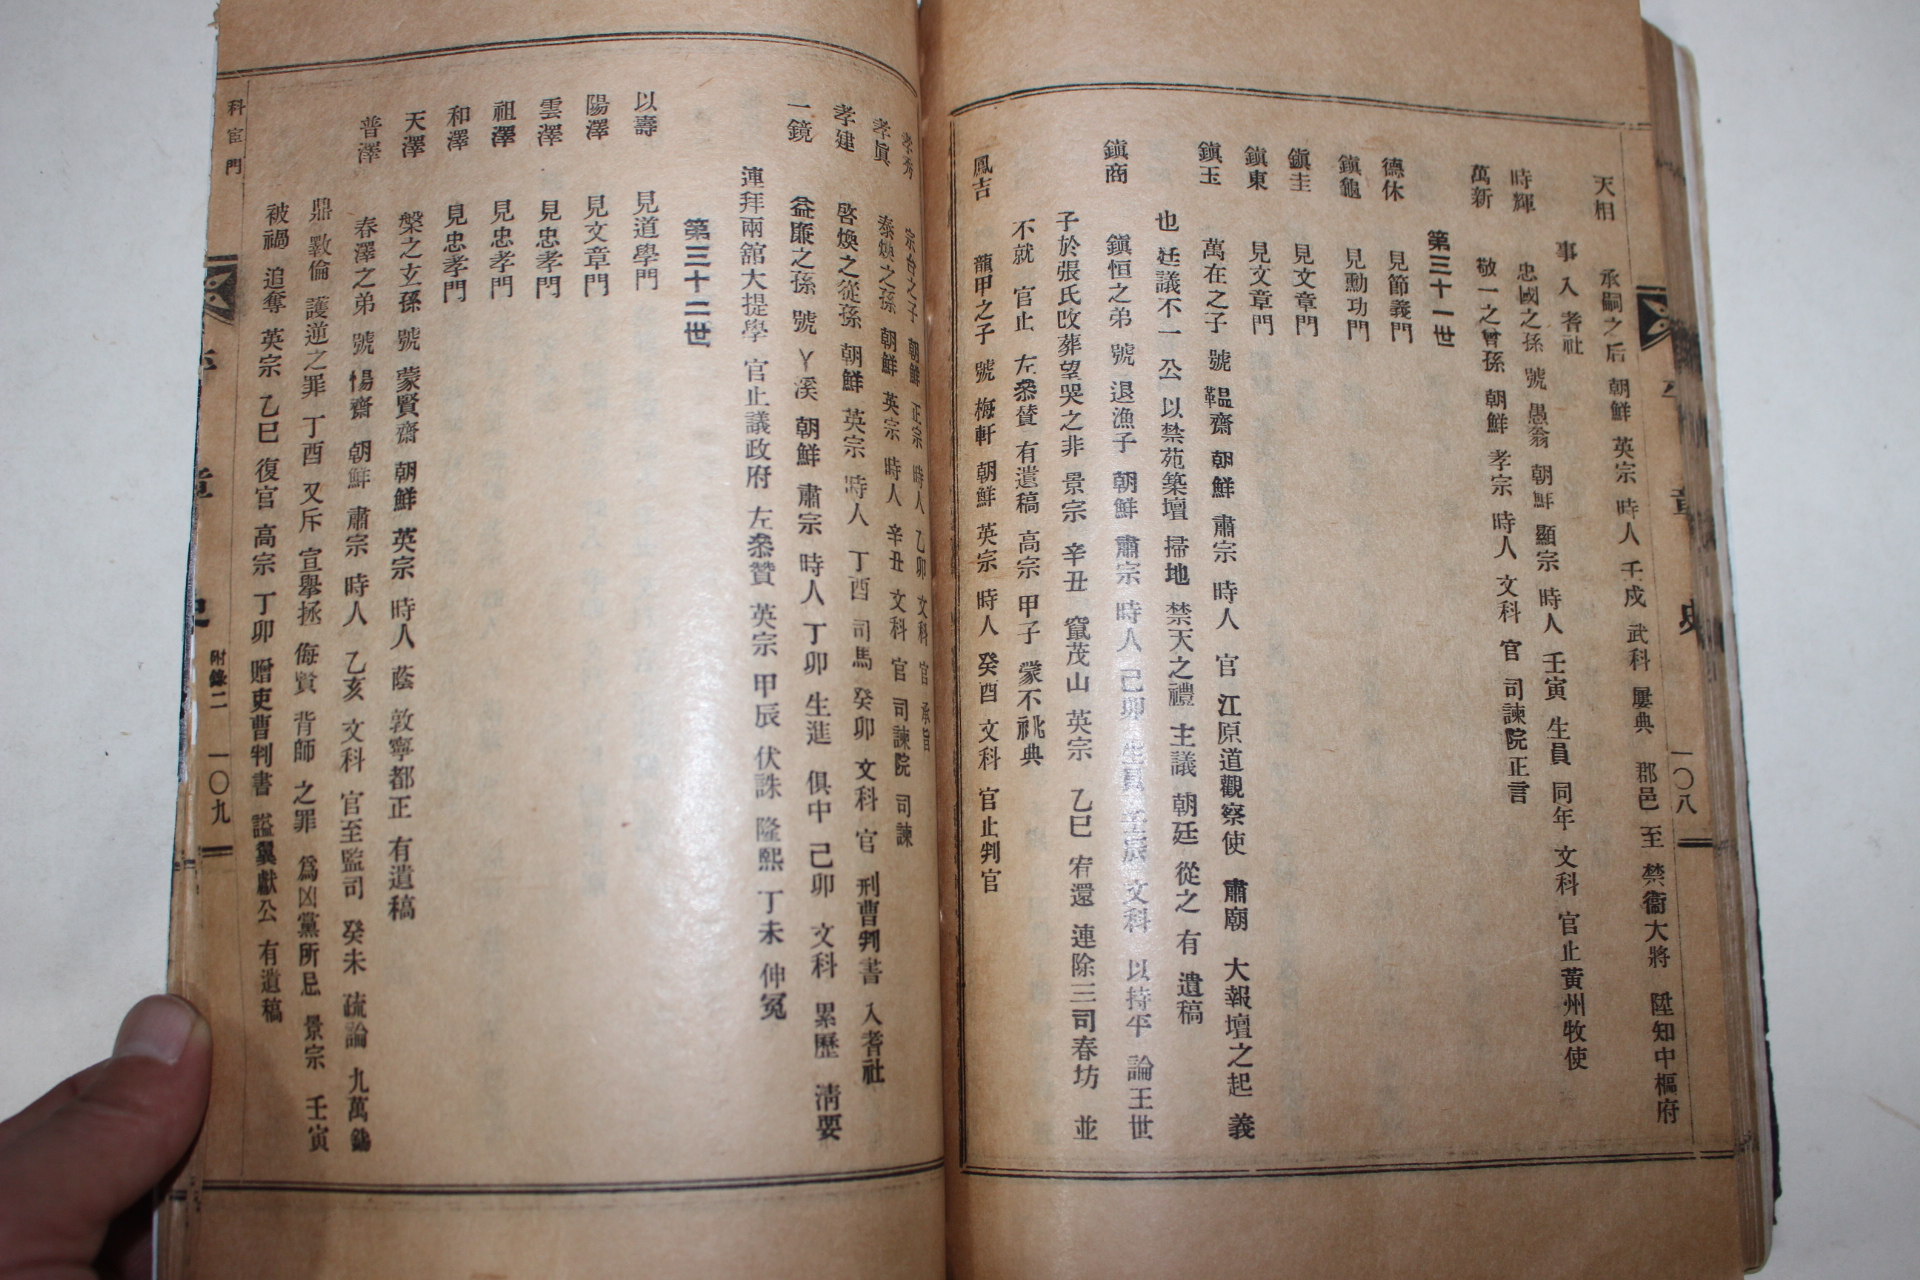 天相 承嗣之后 朝鮮 英宗 時人 壬戌 武科 屢典 郡邑 至 禁衞大將 陞知中樞府
事 入 耆社
時輝 忠國之孫 號 愚翁 朝鮮 顯宗 時人 壬寅 生員 同年 文科 官止黃州牧使
萬新 敬一之曾孫 朝鮮 孝宗 時人 文科 官 司諫院正言
第三十一世
德休 見節義門
鎭龜 見勳功門
鎭圭 見文章門
鎭東 見文章門
鎭玉 萬在之子 號 韞齋 朝鮮 肅宗 時人 官 江原道觀察使 肅廟 大報壇之起 義
也 廷議不一 公 以禁苑築壇 掃地 禁天之禮 主議 朝廷 從之 有 遺稿
鎭商 鎭恒之弟 號 退漁子 朝鮮 肅宗 時人 己卯 生員 壬辰 文科 以持平 論王世
子於張氏改葬望哭之非 景宗 辛丑 竄茂山 英宗 乙巳 宥還 連除三司春坊 並
不就 官止 左叅贊 有遺稿 高宗 甲子 蒙不祧典
鳳吉 龍甲之子 號 梅軒 朝鮮 英宗 時人 癸酉 文科 官止判官
一〇八
孝秀 宗台之子 朝鮮 正宗 時人 乙卯 文科 官 承旨
孝眞 泰煥之孫 朝鮮 英宗 時人 辛丑 文科 官 司諫院 司諫
孝建 啓煥之從孫 朝鮮 英宗 時人 丁酉 司馬 癸卯 文科 官 刑曹判書 入耆社
一鏡 益廉之孫 號 丫溪 朝鮮 肅宗 時人 丁卯 生進 俱中 己卯 文科 累歷 淸要
連拜兩舘大提學 官止議政府 左叅贊 英宗 甲辰 伏誅 隆熙 丁未 伸冤
第三十二世
以壽 見道學門
陽澤 見文章門
雲澤 見忠孝門
祖澤 見忠孝門
和澤 見忠孝門
天澤 槃之玄孫 號 蒙賢齋 朝鮮 英宗 時人 蔭 敦寧都正 有遺稿
普澤 春澤之弟 號 惕齋 朝鮮 肅宗 時人 乙亥 文科 官至監司 癸未 疏論 九萬 錫
鼎 斁倫 護逆之罪 丁酉 又斥 宣擧拯 侮賢 背師 之罪 爲凶黨所忌 景宗 壬寅
被禍 追奪 英宗 乙巳 復官 高宗 丁卯 贈吏曹判書 諡翼獻公 有遺稿
科宦門
章 史
附錄二 一〇九